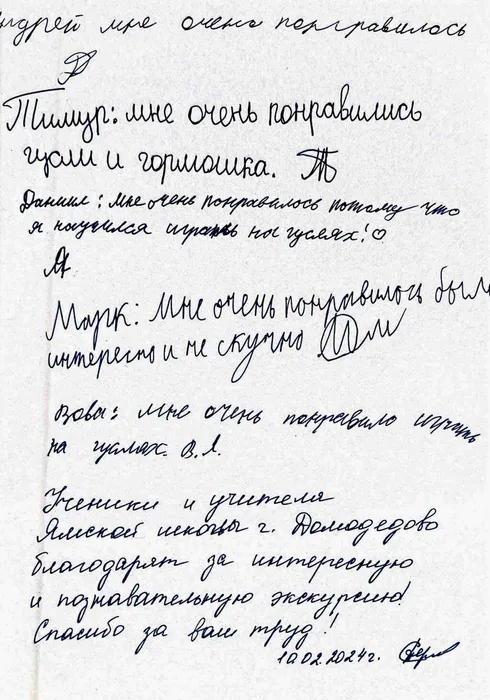 Андрей мне очень понравилось
Тимур: мне очень понравились
гусли и гормошка.
Даниил: Мне очень понравилось потому что
я научился играть на гуслях!♡
Марк: Мне очень понравилось было
интересно и не скучно
Вова: мне очень понравило играть
на гуслях. В.Я.
Ученики и учителя
Ямской школы г. Домодедово
благодарят за интересную
и познавательную экскурсию!
Спасибо за ваш труд!
10.02.2024г.